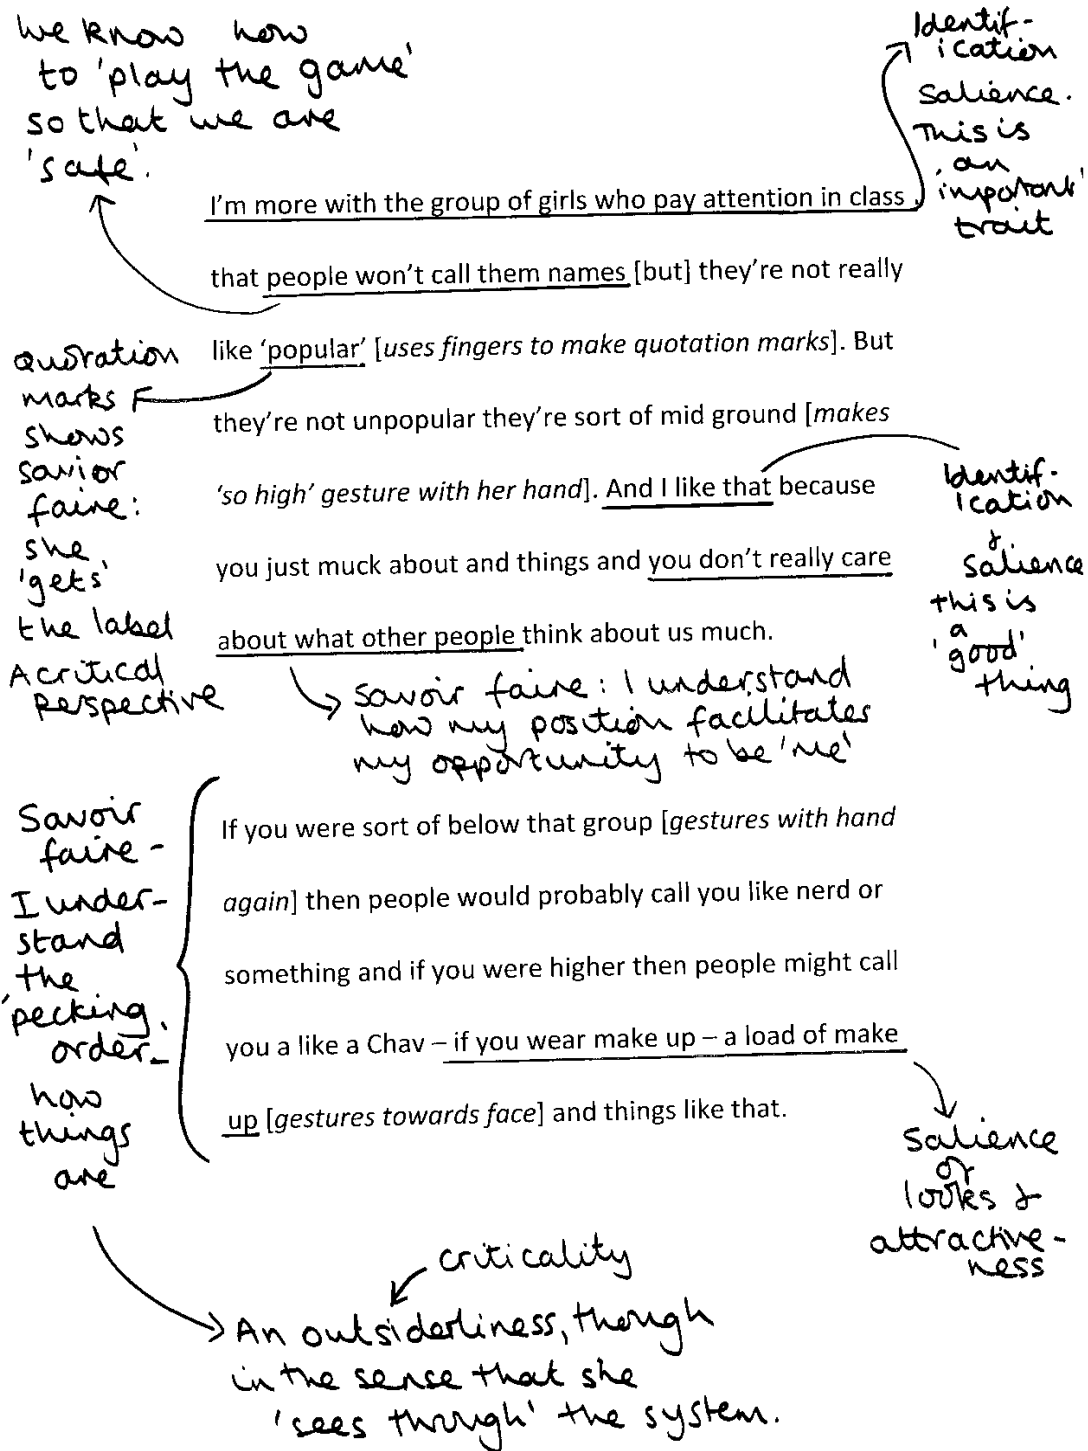 we know how
to 'play the game'
so that we are
'safe'.
Identif-
ication
salience.
This is
an
'important'
trait
I'm more with the group of girls who pay attention in class
that people won't call them names [but] they're not really
like 'popular' [uses fingers to make quotation marks]. But
they're not unpopular they're sort of mid ground [makes
'so high' gesture with her hand]. And I like that because
you just muck about and things and you don't really care
about what other people think about us much.
quotation
marks
shows
savior
faire:
she
'gets'
the label
A critical
perspective
Identif-
ication
&
salience
this is
a
'good'
thing
savoir faire: I understand
how my position facilitates
my opportunity to be 'me'
Savoir
faire -
I under-
stand
the
'pecking
order'-
how
things
are
If you were sort of below that group [gestures with hand
again] then people would probably call you like nerd or
something and if you were higher then people might call
you a like a Chav – if you wear make up – a load of make
up [gestures towards face] and things like that.
Salience
of
looks &
attractive-
ness
criticality
An outsiderliness, though
in the sense that she
'sees through' the system.